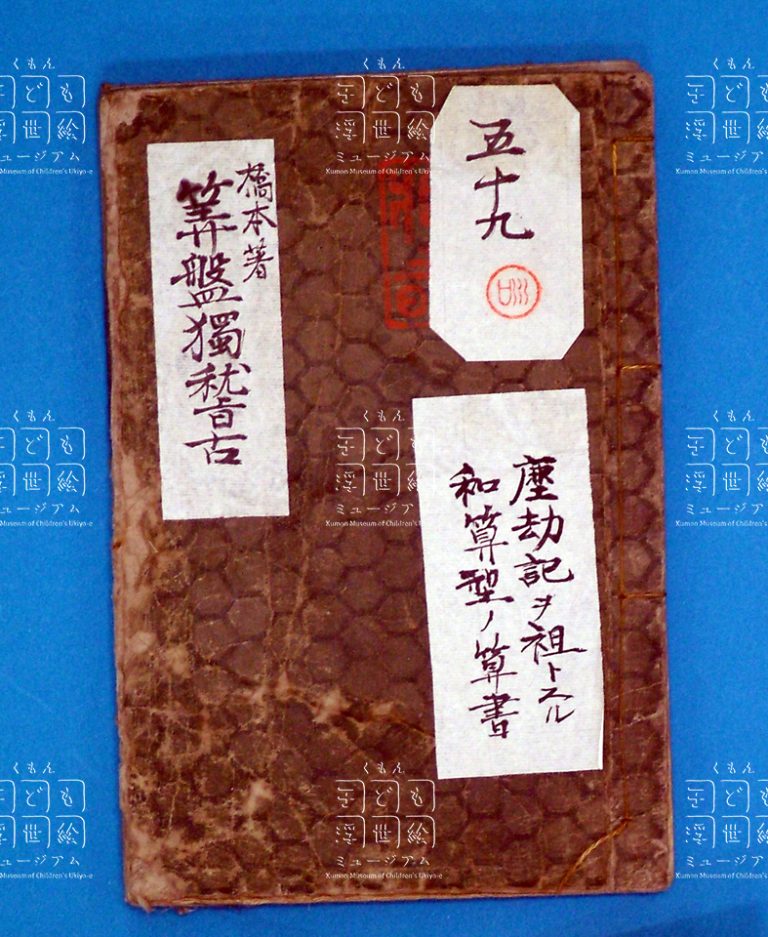 五十九
塵劫記ヲ祖トスル
和算型ノ算書
橋本著
算盤獨稽古
くもん
子ども
浮世絵
ミュージアム
Kumon Museum of Children's Ukiyo-e